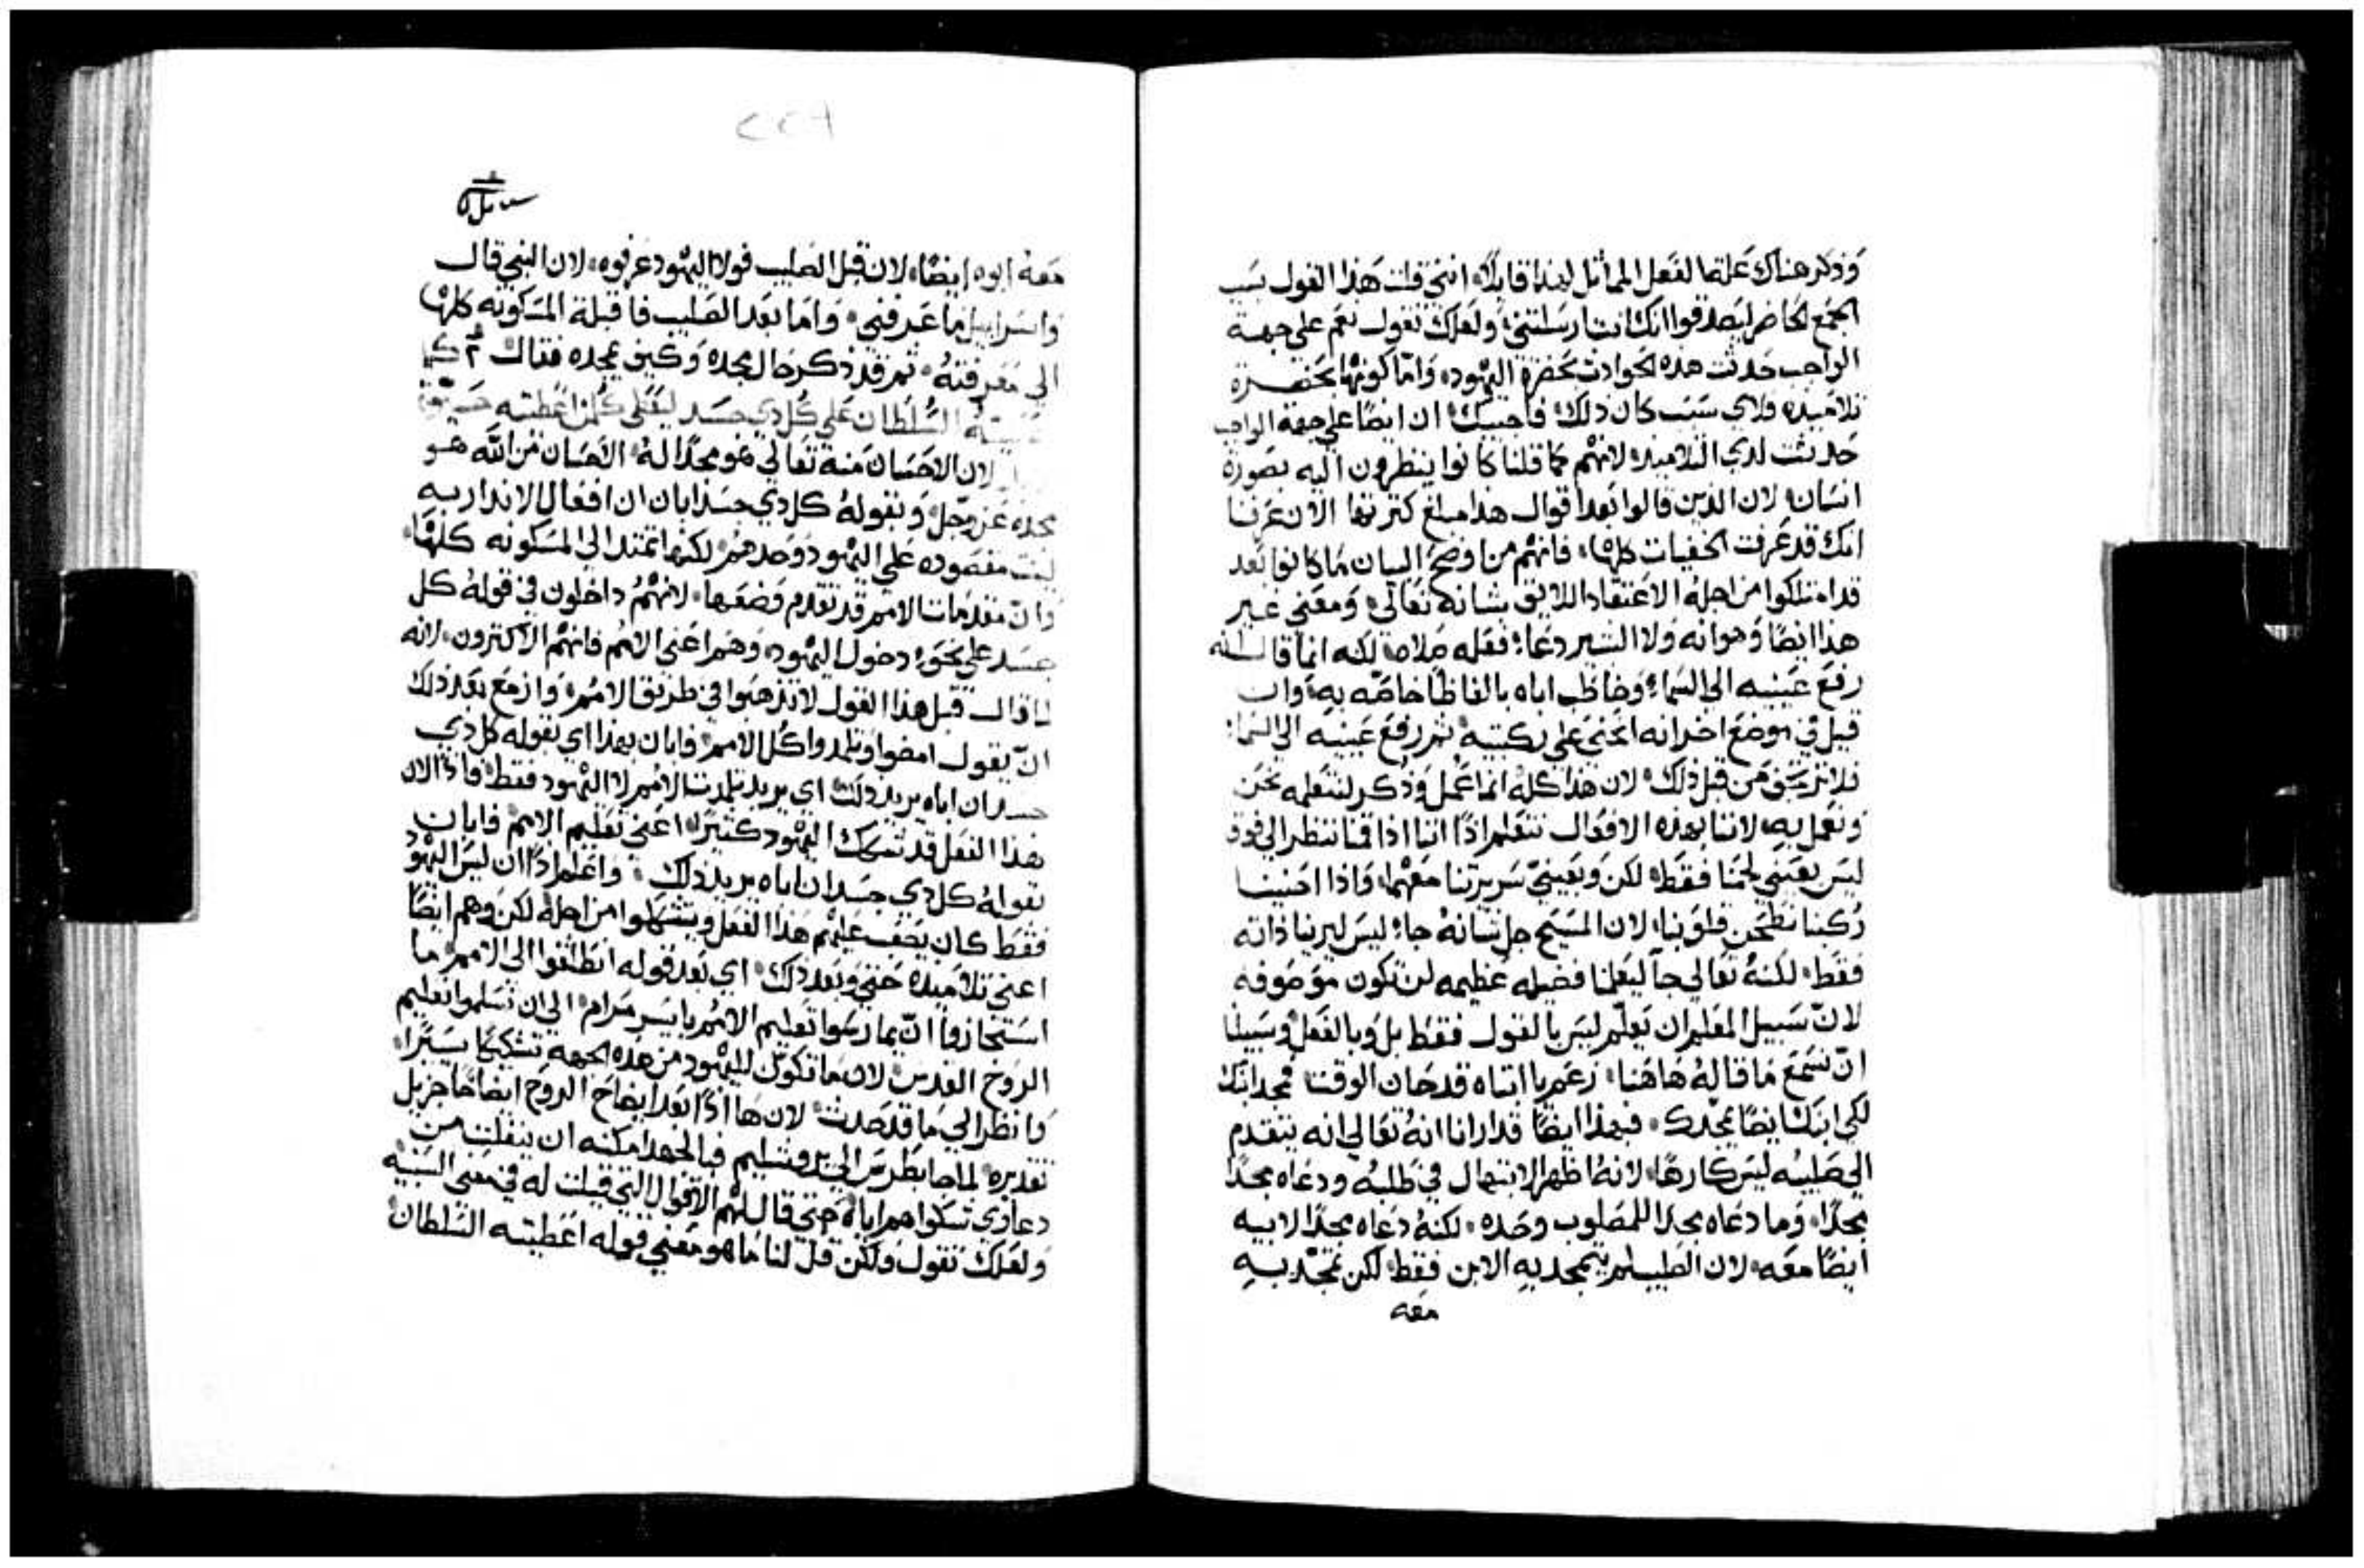 وَذكر هناك عَلة الفعل المماثل لهذا قايلًا، انني قلت هَذا القول بسَبب
الجمَع الحَاضر ليَصدقوا انك انت ارسَلتني، ولعَلك تقول نعَم على جهة
الواجب حَدثت هذه الحوادث بحَضرة اليَهود، وَامّا كونها بحَضرة
تلاميذه فلاي سَبَب كان ذلك، فاجيبك ان ايضًا على جهة الواجب
حَدثت لدي التلاميذ، لانهم كما قلنا كانوا ينظرون اليه بصَورة
انسَان، لان الذين قالوا بَعد اقوال هذا مبلغ كثرتها الان عَرفنا
انك قد عَرفت الخفيات كلها، فانهم من اوضح البيان مَا كانوا بَعد
قد امتلكوا من اجله الاعتقاد اللايق بشانه تعَالي، وَمعَني غير
هذا ايضًا وَهو انه ولا اليسير دعَا، فعَله صَلاه، لكنه انمَا قال انه
رفع عَينيه الى السَماء، وَخاطب اباه بالفاظًا خاصّه به، وان
قيل في موضع اخر انه انحني على ركبتيه ثم رفع عَينيه الى السَماء،
فلا ترتجف من قبل ذلك، لان هَذا كله انما عُمل وَذُكر لنتعَلمه نحَن
ونعَمل به، لاننا بهذه الاقوال نتعَلم اذًا اننا اذا قمنا ننظر الى فوق
ليسَ بعَيني لحمنا فقط، لكن وَبعَينيّ سَريرتنا مَعَهما، وَاذا احنينا
رُكبنا نطحن قلوبنا، لان المسَيح جل شانهُ جاء ليسَ ليرينا ذاته
فقط، لكنهُ تعَالي جآ ليعَلمنا فضيله عَظيمه لن تكون موَصَوفه
لانّ سَبيل المعَلم ان يَعَلّم ليسَ بالقول فقط بل وَبالفعَل، وسَبيلنا
انّ نسَمَع مَا قالهُ هَاهَنا، زعم يا ابتاه قد حَان الوقت، فمجد ابنك
لكي ابنك ايضًا يمجّدك، فبهذا ايضًا قد ارانا انهُ تعَالي انه يتقدم
الى صَليبه ليسَ كارهًا، لانهُ اظهر الابتهال في طلبُه ودعَاه مجدًا
مجدًا، وَما دعَاه مجدًا للمصَلوب وحَده، لكنهُ دعَاه مجدًا لابيه
ايضًا معَه، لان الصَليب لم يتمجد به الابن فقط، لكن تمجّد به
معه
٢٢٨
معَهُ ابوه ايضًا، لان قبل الصَليب فولا اليهَود عَرفوه، لان النبي قال
واسَراييل ما عَرفني، وَامَا بعَد الصَليب فاقبلت المسَكونه كلها
الى مَعَرفتهُ، ثم قد ذكر حَال مجده وَكيف يمجده فقال كما
اعطيته السُلطان عَلي كُل ذي جسَد ليُعَطي كُلمن اعَطيته حَيوة
لان الاحسَان مَنهُ تعَالي هَو مجدًا لهُ، الاحسَان من الله هَو
مجده عَز وَجل، وبقولهُ كل ذي جسَد ابان ان افعَال الانذار به
ليسَت مقصَوده عَلي اليهَود وَحَدهم، لكنها تمتد الى المسَكونه كلها،
وَانّ مقدمَات الامم قد تقدم وَضعَها، لانهُم داخلون في قولهُ كل
جسَد على نحَو دخول اليهَود، وَهم اعَني الامم فانهُم الاكثرون، لانه
لما قال قبل هذا القول لا تذهبَوا في طريق الامم، وَازمع بعَد ذلك
انّ يقول امضوا وتلمدوا كُل الامم، فابان بهذا اي بقوله كل ذي
جسَد ان اباه يريد ذلك، اي يريد تلمدت الامم لا اليهَود فقط، فاذًا الان
هذا الفعَل قد شكك اليهَود كثيرًا، اعَني تعَليم الامم، فابان
بقولهُ كل ذي جسَد ان اباه يريد ذلك، واعَلم اذًا ان ليسَ اليهَود
فقط كان يَصَعب عَليهم هَذا الفعَل ويتشككوا من اجله، لكن وهم ايضًا
اعني تلاميذه حَتي وبعَد ذلك، اي بعَد قوله انطلقوا الى الامم، ما
استجازوا انّ يمارسَوا تعَليم الامم بايسر مَرام، الى ان تسَلموا تعَليم
الروَح القدس، لان مَا تكوّن لليهَود من هَذه الجهه تشكيكًا يسَيرًا،
وَانظر الى مَا قد حَدث، لان هَا اذًا بعَد ايضاح الروَح ايضاحًا جزيل
تقديره، لما جا بطرسَ الى اورشليم فبالجهد امكنه ان ينفلت من
دعَاوي شكواهم اياه، حتي قال لهُم الاقوال التي قيلت له في معَني السَبنيه
ولعَلك تقول ولكن قل لنا مَا هو معَني قوله اعَطيته السَلطان